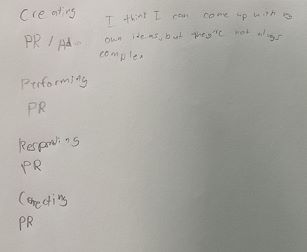 Creating
PR / Ad
I think I can come up with my
own ideas, but they're not always
complex
Performing
PR
Responding
PR
Connecting
PR